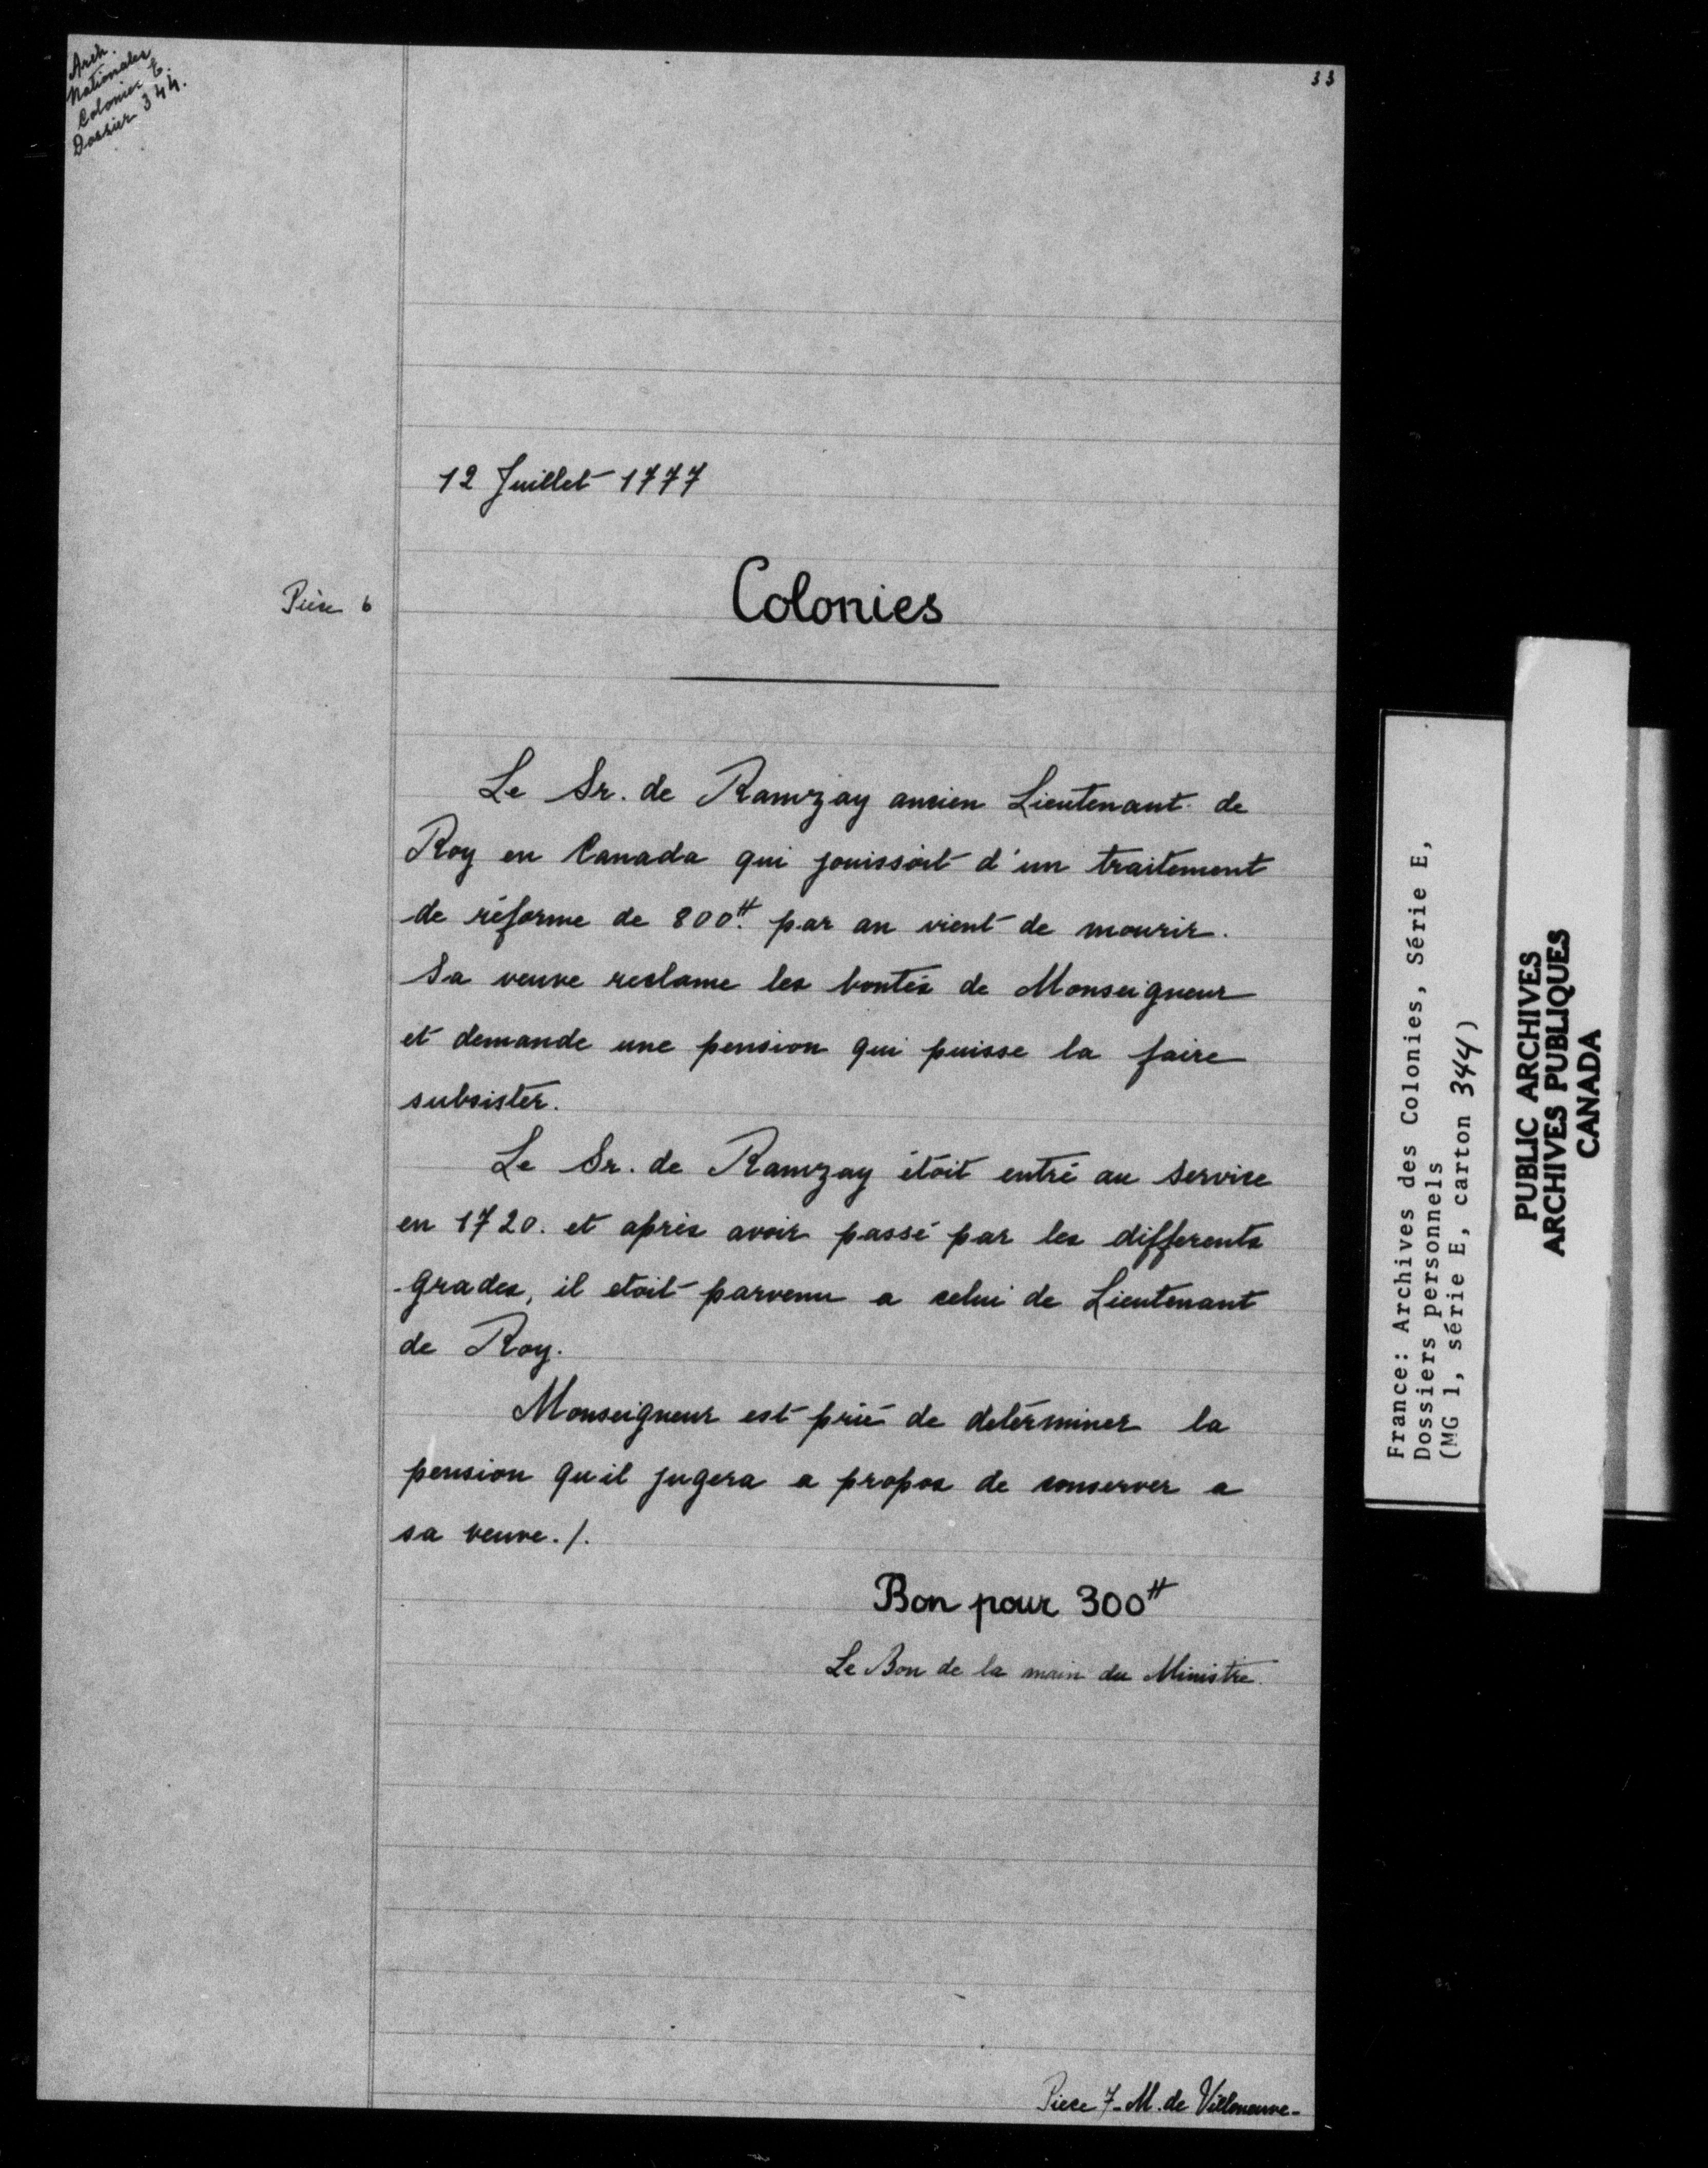 Arch.
Nationales
Colonies E.
Dossier 344.
33
12 Juillet 1777
Pièce 6
Colonies
Le Sr. de Ramzay ancien Lieutenant de
Roy en Canada qui jouissoit d'un traitement
de réforme de 800ᴴ. par an vient de mourir.
Sa veuve reclame les bontés de Monseigneur
et demande une pension qui puisse la faire
subsister.
Le Sr. de Ramzay étoit entré au service
en 1720. et après avoir passé par les differents
grades, il etoit parvenu a celui de Lieutenant
de Roy.
Monseigneur est prié de determiner la
pension qu'il jugera a propos de conserver a
sa veuve./.
Bon pour 300ᴴ
Le Bon de la main du Ministre.
Piece 7 - M. de Villeneuve -
France: Archives des Colonies, Série E,
Dossiers personnels
(MG 1, série E, carton 344)
PUBLIC ARCHIVES
ARCHIVES PUBLIQUES
CANADA